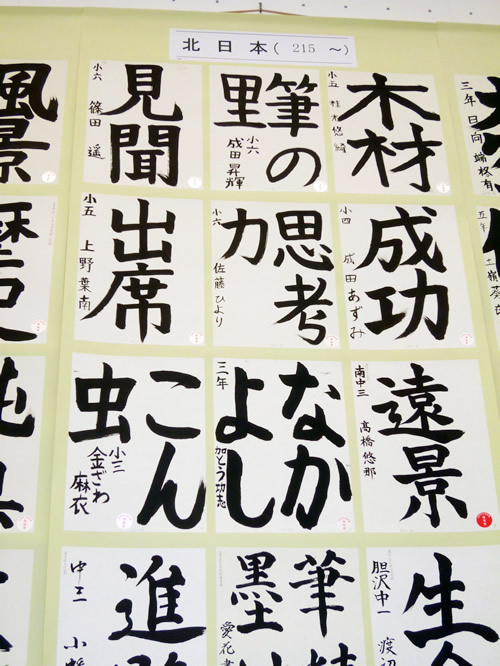 北日本( 215 ～)
三年 日向
木材
小五
筆の
里
小六 成田昇輝
見聞
小六 篠田 遥
風景
五年
成功
小四 成田あずみ
思考
力
小六 佐藤ひより
出席
小五 上野葉南
遠景
南中三 高橋悠那
なか
よし
三年 加とう功志
こん
虫
小三 金ざわ麻衣
生
胆沢中一 渡辺
筆
墨
愛花
進
中三